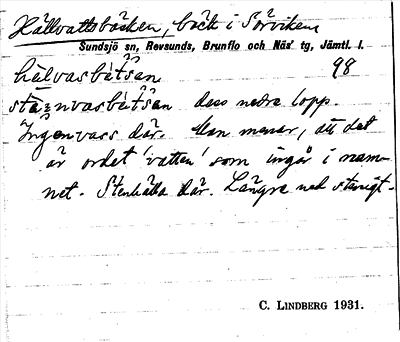 Hällvattsbäcken, bäck i Sörviken
Sundsjö sn, Revsunds, Brunflo och Näs tg, Jämtl. l.
hälvasbètsan 98
stäɪnvasbètsan dess nedre lopp.
Ingen vass där. Man menar, att det
är ordet 'vatten' som ingår i nam-
net. Stenhälla där. Längre ned stenigt.
C. LINDBERG 1931.